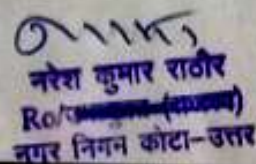 नरेश कुमार राठौर
Ro/
नगर निगन कोटा-उत्तर